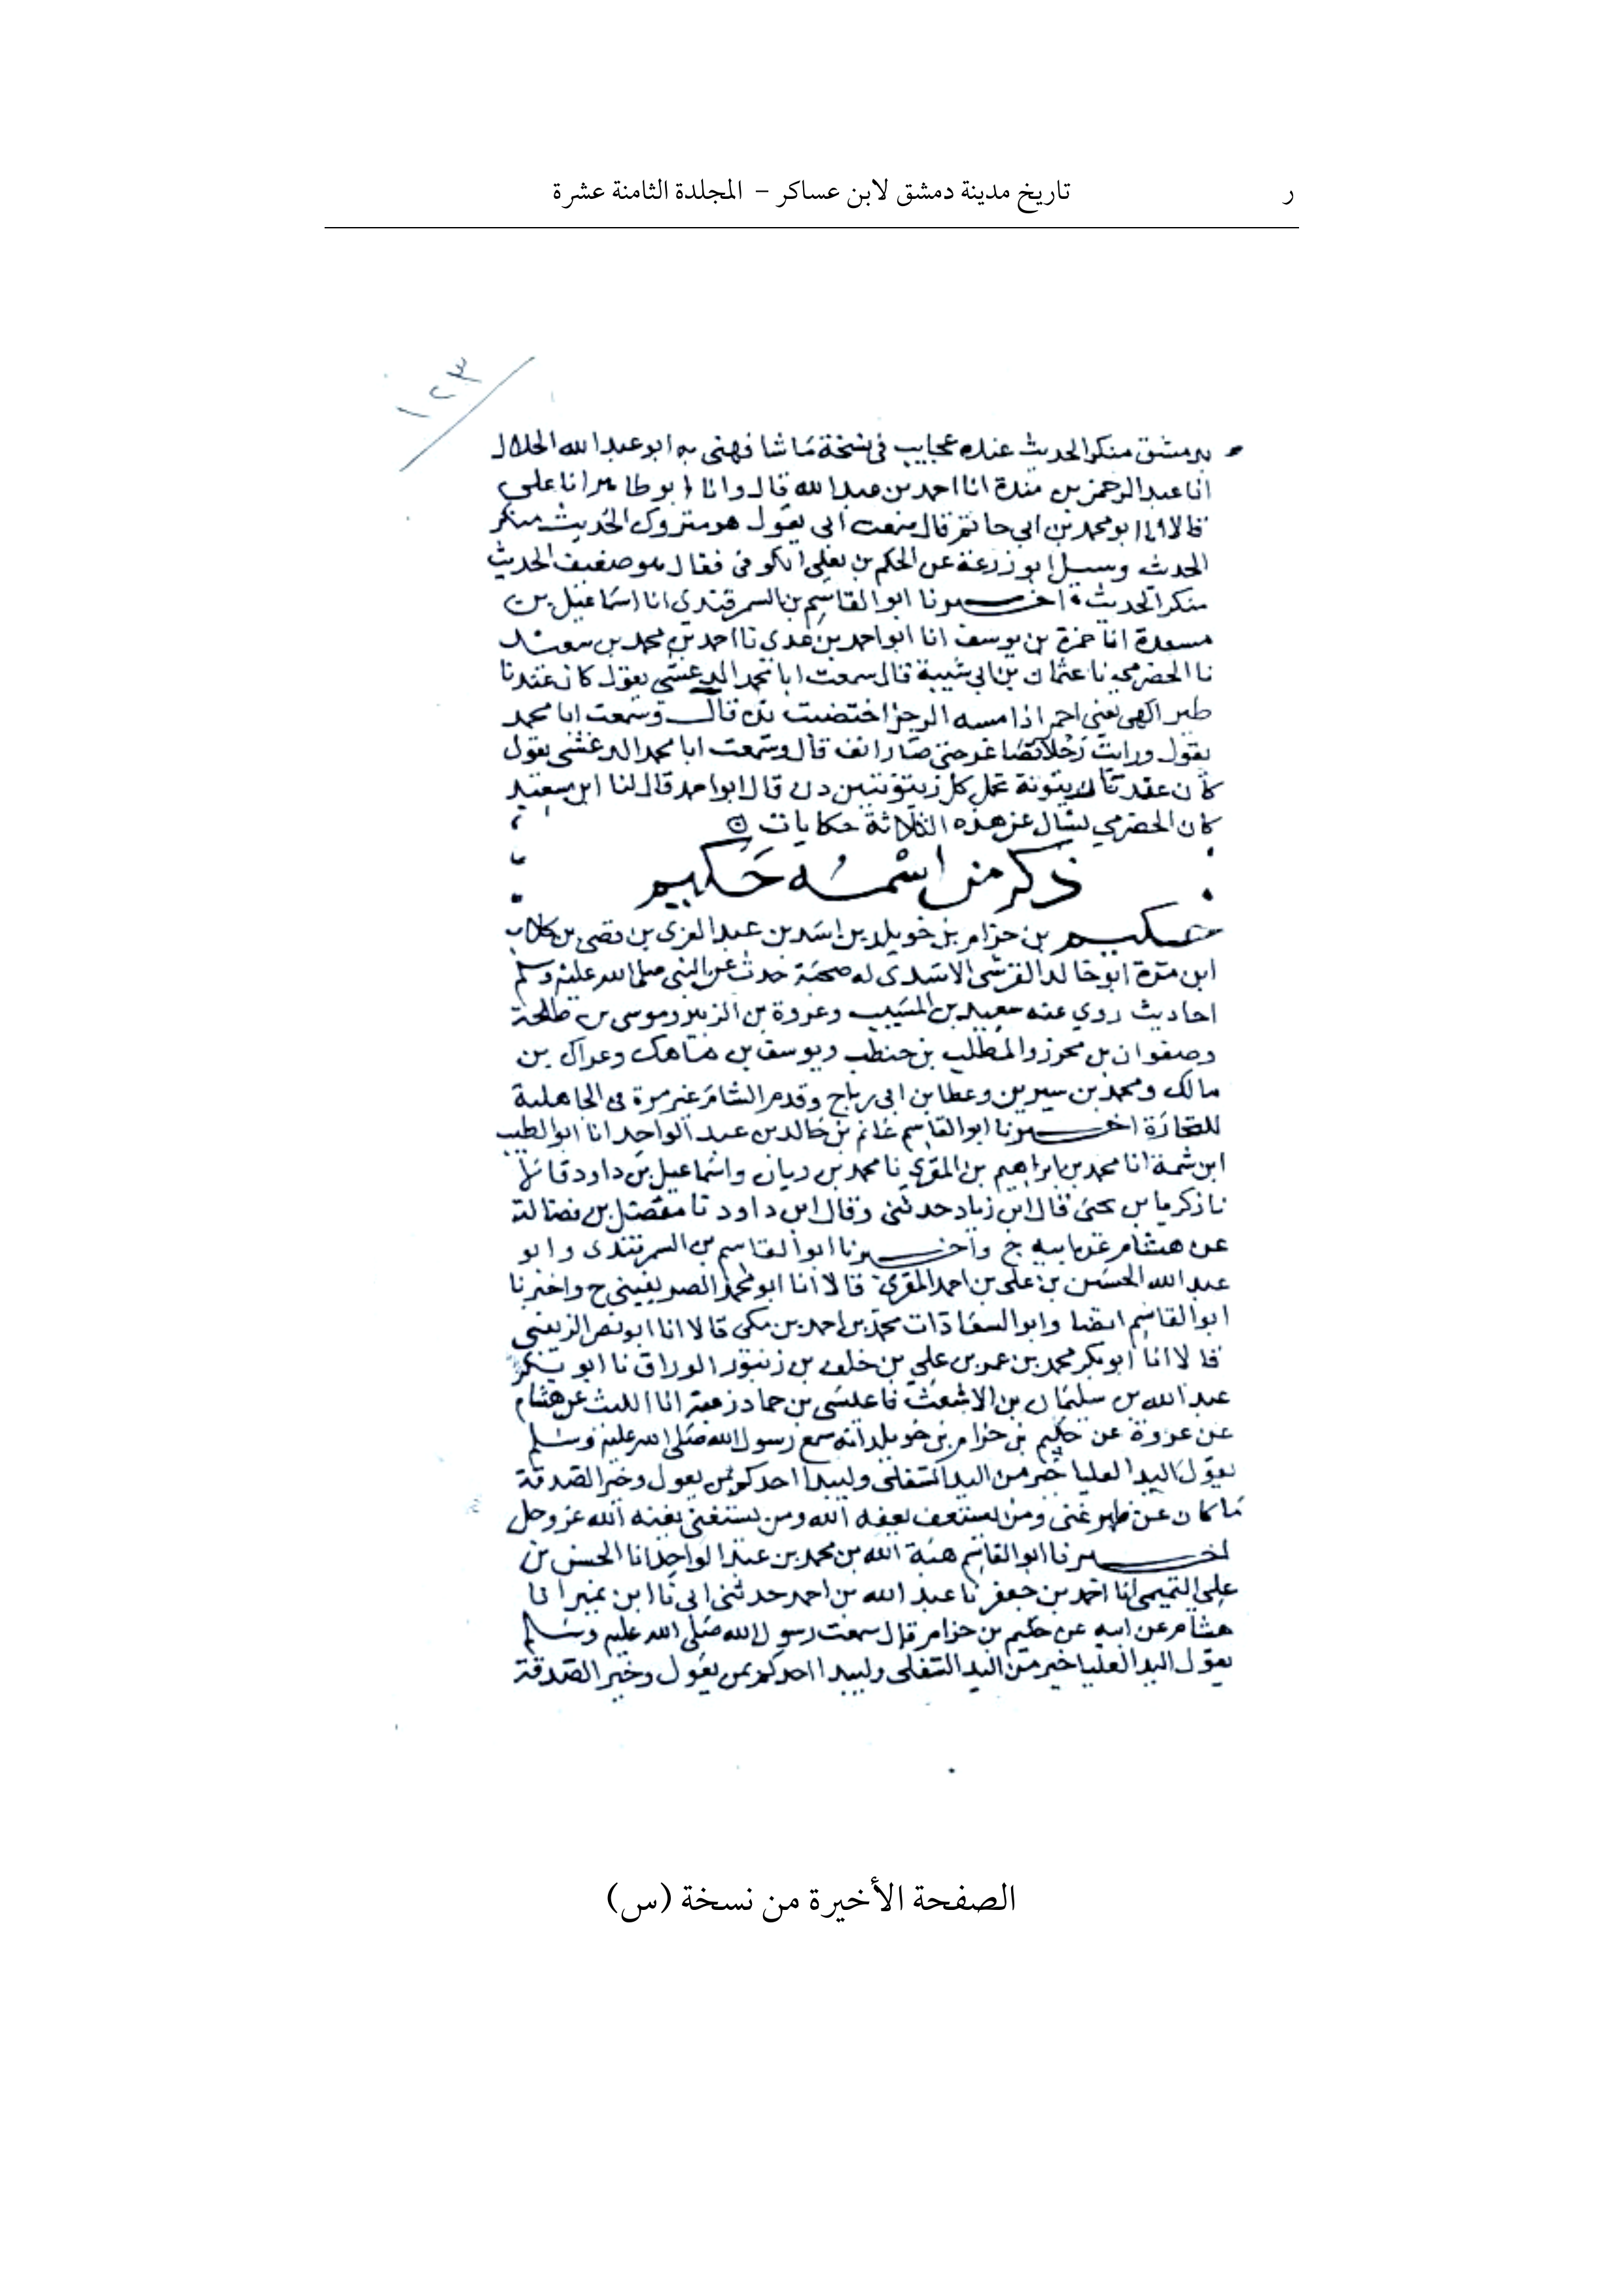 ر
تاريخ مدينة دمشق لابن عساكر – المجلدة الثامنة عشرة
١٢٣
بدمشق منكر الحديث عنده عجايب في نسخة ما شافهني به ابو عبد الله الخلال
انا عبد الرحمن بن مندة انا احمد بن عبد الله قال وانا ابو طاهر انا علي
قالا انا ابو محمد بن ابي حاتم قال سمعت ابي يقول هو متروك الحديث منكر
الحديث وسيل ابو زرعة عن الحكم بن يعلى الكوفي فقال هو ضعيف الحديث
منكر الحديث اخبرنا ابو القاسم بن السمرقندي انا اسماعيل بن
مسعدة انا حمزة بن يوسف انا ابو احمد بن عدي نا احمد بن محمد بن سعيد
نا الحضرمي نا عثمان بن ابي شيبة قال سمعت ابا محمد الدغشي يقول كان عندنا
طير يعني احمر اذا مسه الرجل اختضبت يده قال وسمعت ابا محمد
يقول ورايت رجلا حتى صار قال وسمعت ابا محمد الدغشي يقول
كان عندنا زيتونة تحمل كل زيتونتين قال ابو احمد قال لنا ابن سعيد
كان الحضرمي يسال عن هذه الثلاثة حكايات
ذكر من اسمه حكيم
حكيم بن حزام بن خويلد بن اسد بن عبد العزى بن قصي بن كلاب
ابن مرة ابو خالد القرشي الاسدي له صحبة حدث عن النبي صلى الله عليه وسلم
احاديث روى عنه سعيد بن المسيب وعروة بن الزبير وموسى بن طلحة
وصفوان بن محرز والمطلب بن حنطب ويوسف بن ماهك وعراك بن
مالك ومحمد بن سيرين وعطا بن ابي رباح وقدم الشام غير مرة في الجاهلية
للتجارة اخبرنا ابو القاسم غانم بن خالد بن عبد الواحد انا ابو الطيب
ابن شمة انا محمد بن ابراهيم بن المقرئ نا محمد بن زبان واسماعيل بن داود قالا
نا زكريا بن يحيى قال ابن زياد حدثني وقال ابن داود نا مفضل بن فضالة
عن هشام عن ابيه ح واخبرنا ابو القاسم بن السمرقندي وابو
عبد الله الحسين بن علي بن احمد المقرئ قالا انا ابو محمد الصريفيني ح واخبرنا
ابو القاسم ايضا وابو السعادات محمد بن احمد بن مكي قالا انا ابو نصر الزينبي
قالا انا ابو بكر محمد بن عمر بن علي بن خلف بن زنبور الوراق نا ابو بكر
عبد الله بن سليمان بن الاشعث نا عيسى بن حماد زغبة انا الليث عن هشام
عن عروة عن حكيم بن حزام بن خويلد انه سمع رسول الله صلى الله عليه وسلم
يقول اليد العليا خير من اليد السفلى وليبدا احدكم بمن يعول وخير الصدقة
ما كان عن ظهر غنى ومن يستعفف يعفه الله ومن يستغني يغنه الله عز وجل
اخبرنا ابو القاسم هبة الله بن محمد بن عبد الواحد انا الحسن بن
علي التميمي انا احمد بن جعفر نا عبد الله بن احمد حدثني ابي نا ابن نمير انا
هشام عن ابيه عن حكيم بن حزام قال سمعت رسول الله صلى الله عليه وسلم
يقول اليد العليا خير من اليد السفلى وليبدا احدكم بمن يعول وخير الصدقة
الصفحة الأخيرة من نسخة (س)